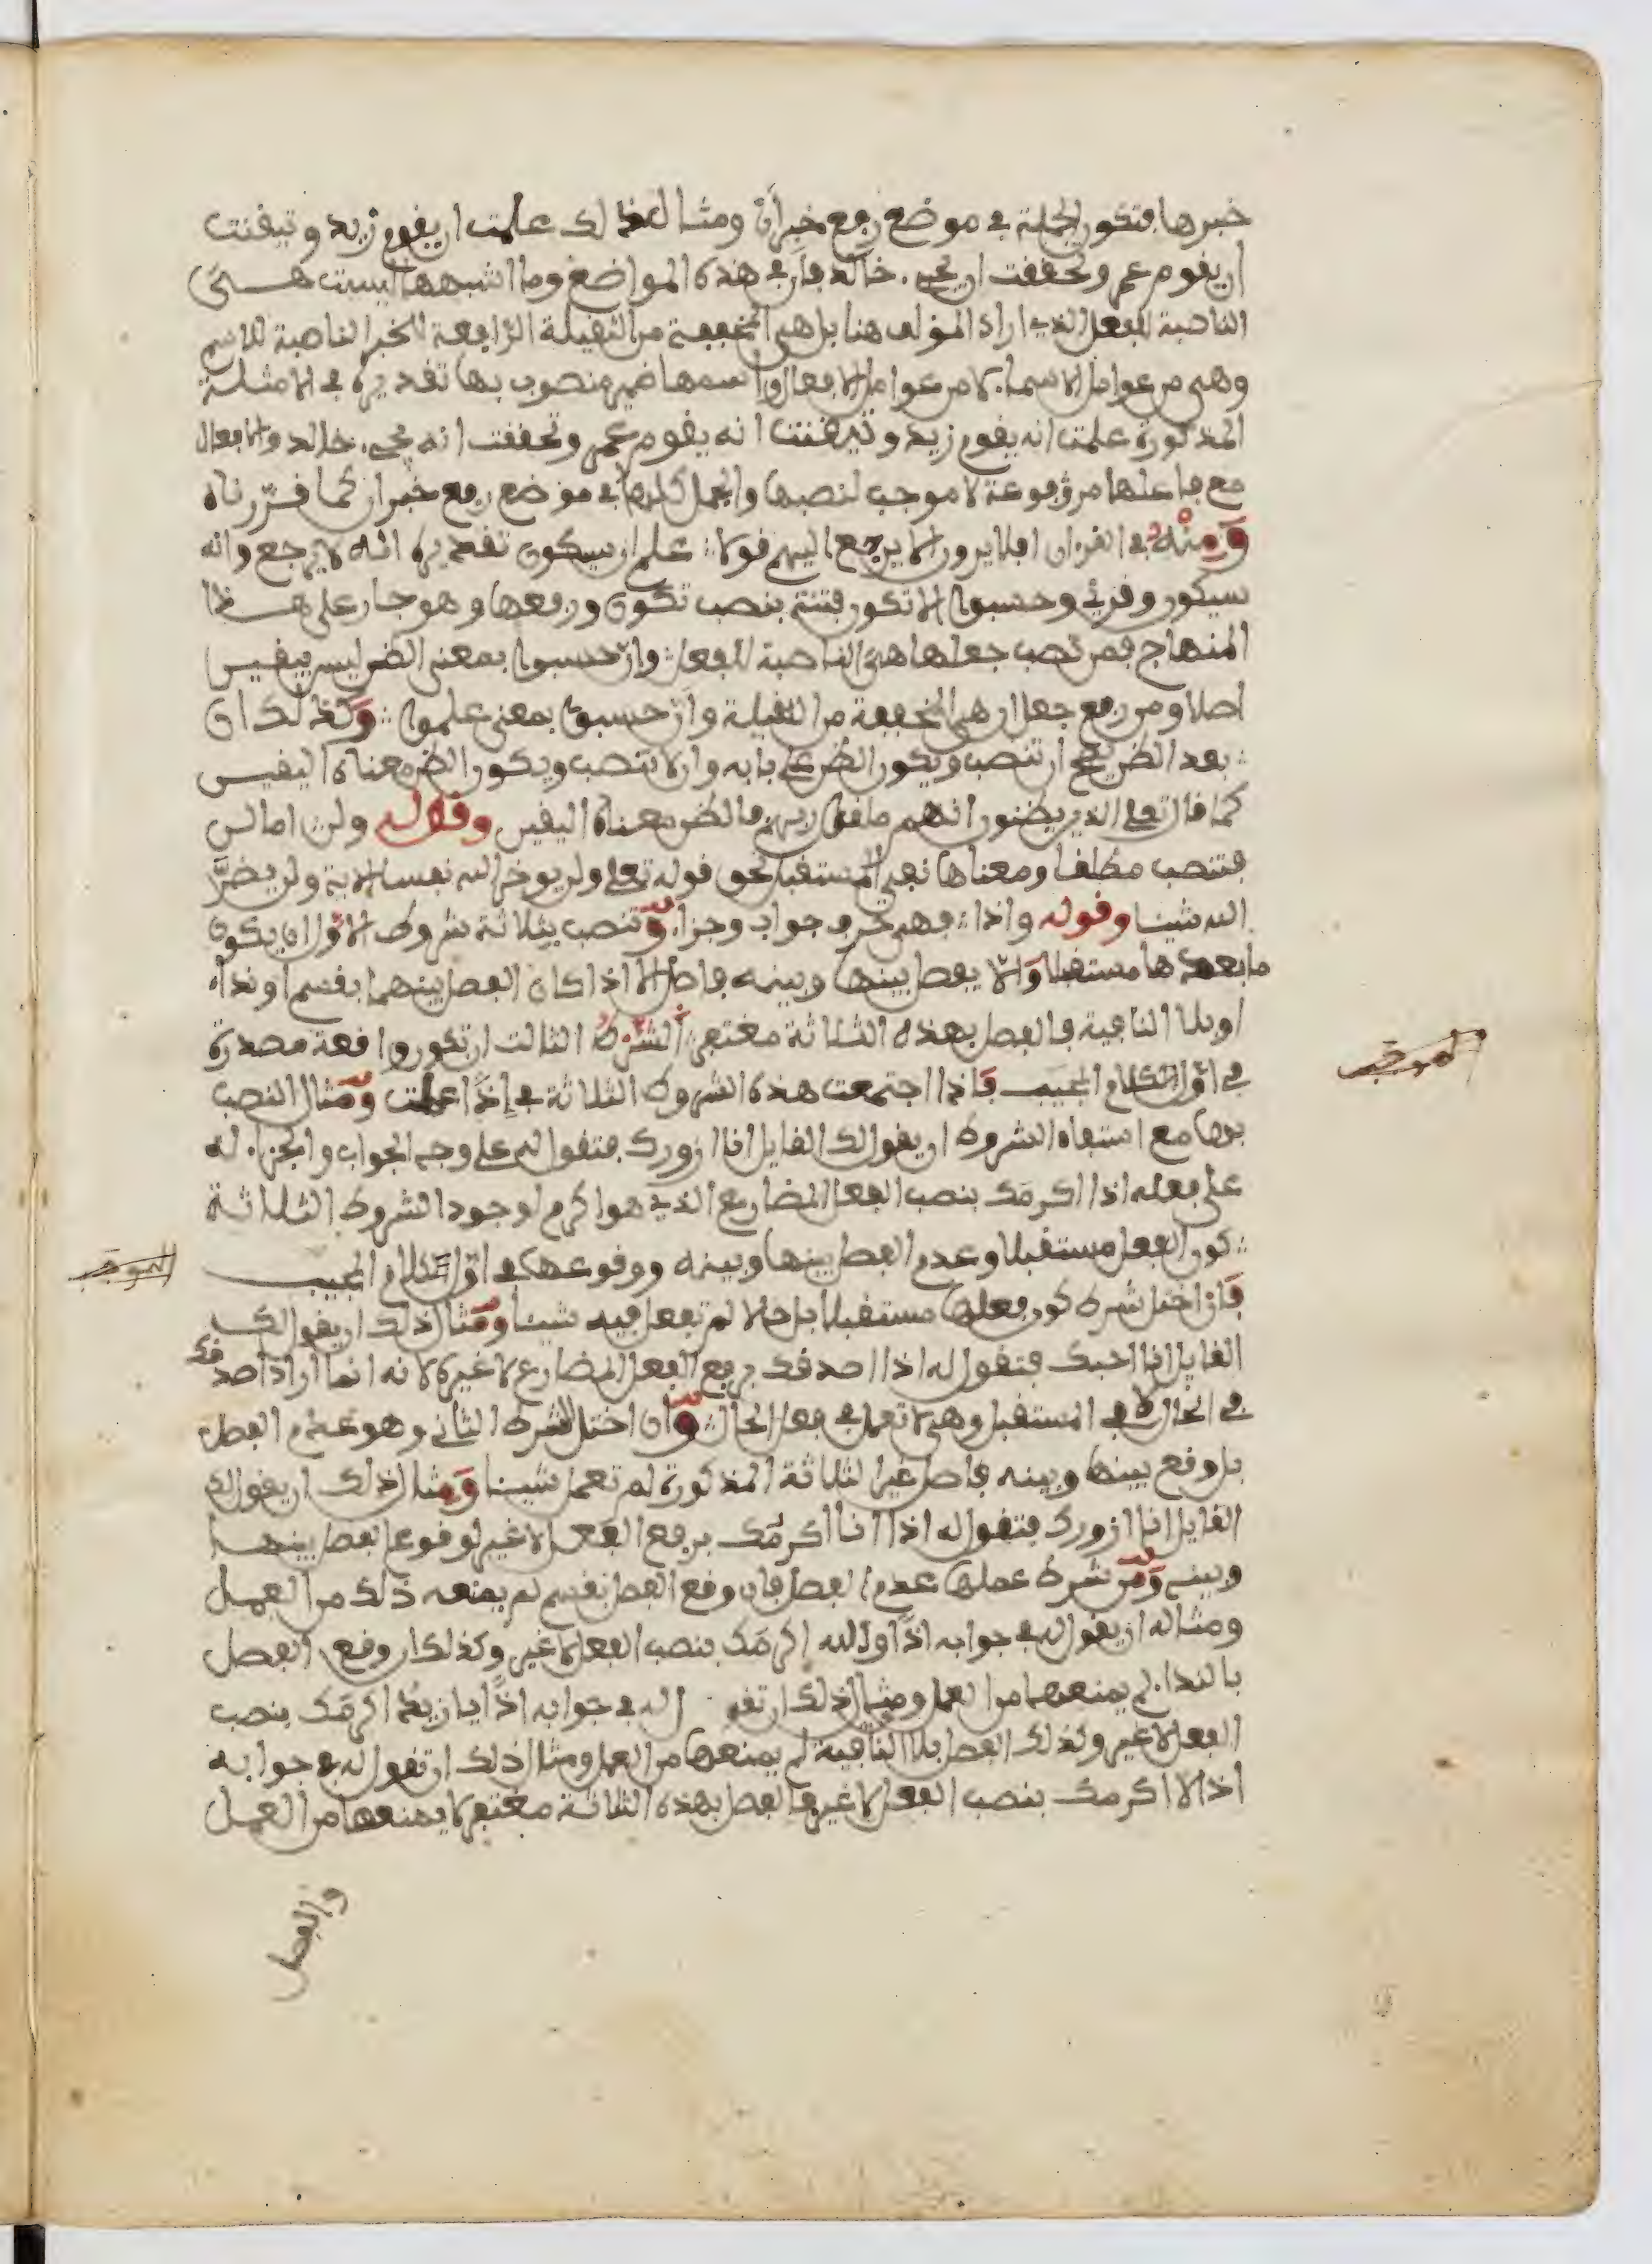 خبرها فتكون الجملة في موضع رفع خبر أن ومثال ذلك علمت ان يقوم زيد وتيقنت
ان يقوم عمر وتحققت ان يجيء خالد فأن في هذه المواضع وما اشبهها ليست هي
الناصبة للفعل الذي اراد المؤلف هنا بل هي المخففة من الثقيلة الرافعة للخبر الناصبة للاسم
وهي من عوامل الاسماء لا من عوامل الافعال واسمها ضمير منصوب بها تقديره في الامثلة
المذكورة علمت انه يقوم زيد وتيقنت انه يقوم عمر وتحققت انه يجيء خالد والافعال
مع فاعلها مرفوعة لا موجب لنصبها والجمل كلها في موضع رفع خبر ان كما قررناه
وَمِنْهُ في القرءان افلا يرون الا يرجع اليهم قولا علم ان سيكون تقديره انه لا يرجع وانه
سيكون وقرئ وحسبوا الا تكون فتنة بنصب تكون ورفعها وهو جار على هذا
المنهاج فمن نصب جعلها هي الناصبة للفعل وان حسبوا بمعنى الظن ليس بيقين
اصلا ومن رفع جعل ان هي المخففة من الثقيلة وأن حسبوا بمعنى علموا وكذلك ان
بعد الظن يصح ان تنصب ويكون الظن على بابه وان لا تنصب ويكون الظن معناه اليقين
كما قال تعلى الذين يظنون انهم ملقوا ربهم فالظن معناه اليقين وقوله ولن اما لن
فتنصب مطلقا ومعناها نفي المستقبل نحو قوله تعلى ولن يوخر الله نفسا الاية ولن يضرَّ
الله شيئا وقوله واذا فهي حرف جواب وجزاء وتنصب بثلاثة شروط الاول ان يكون
ما بعدها مستقبلا وَالّا يفصل بينها وبينه فاصل الا اذا كان الفصل بينهما بقسم او نداء
او بلا النافية فالفصل بهذه الثلاثة مغتفر الشرط الثالث ان تكون واقعة مصدرة
في اوّل الكلام المجيب فاذا اجتمعت هذه الشروط الثلاثة في إذًا عملت ومثال النصب
بها مع استيفاء الشروط ان يقول لك القايل انا ازورك فتقول له على وجه الجواب والجزاء له
على فعله اذا اكرمَك بنصب الفعل المضارع الذي هو اكرم لوجود الشروط الثلاثة
كون الفعل مستقبلا وعدم الفصل بينها وبينه ووقوعها في اوّل الكلام المجيب
فان اختل شرط كون فعلها مستقبلا بل حالا لم تعمل فيه شيئا ومثال ذلك ان يقول لك
القايل انا احبك فتقول له اذا اصدقك برفع الفعل المضارع لا غيره لانه انما اراد اصدقك
في الحال لا في المستقبل وهي لا تعمل في فعل الحال وان اختل الشرط الثاني وهو عدم الفصل
بل وقع بينها وبينه فاصل غير الثلاثة المذكورة لم تعمل شيئا وَمثال ذلك ان يقول لك
القايل انا ازورك فتقول له اذا انا اكرمُك برفع الفعل لا غير لوقوع الفصل بينها
وبينه وَمن شرط عملها عدم الفصل فان وقع الفصل بقسم لم يمنعه ذلك من العمل
ومثاله ان يقول له في جوابه اذًا والله اكرمَك بنصب الفعل لا غير وكذلك ان وقع الفصل
بالنداء لم يمنعها من العمل ومثال ذلك ان تقول له في جوابه اذًا يا زيد اكرمَك بنصب
الفعل لا غير وكذلك الفصل بلا النافية لم يمنعها من العمل ومثال ذلك ان تقول له في جوابه
اذا لا اكرمك بنصب الفعل لا غير فالفصل بهذه الثلاثة مغتفر لا يمنعها من العمل
والفصل